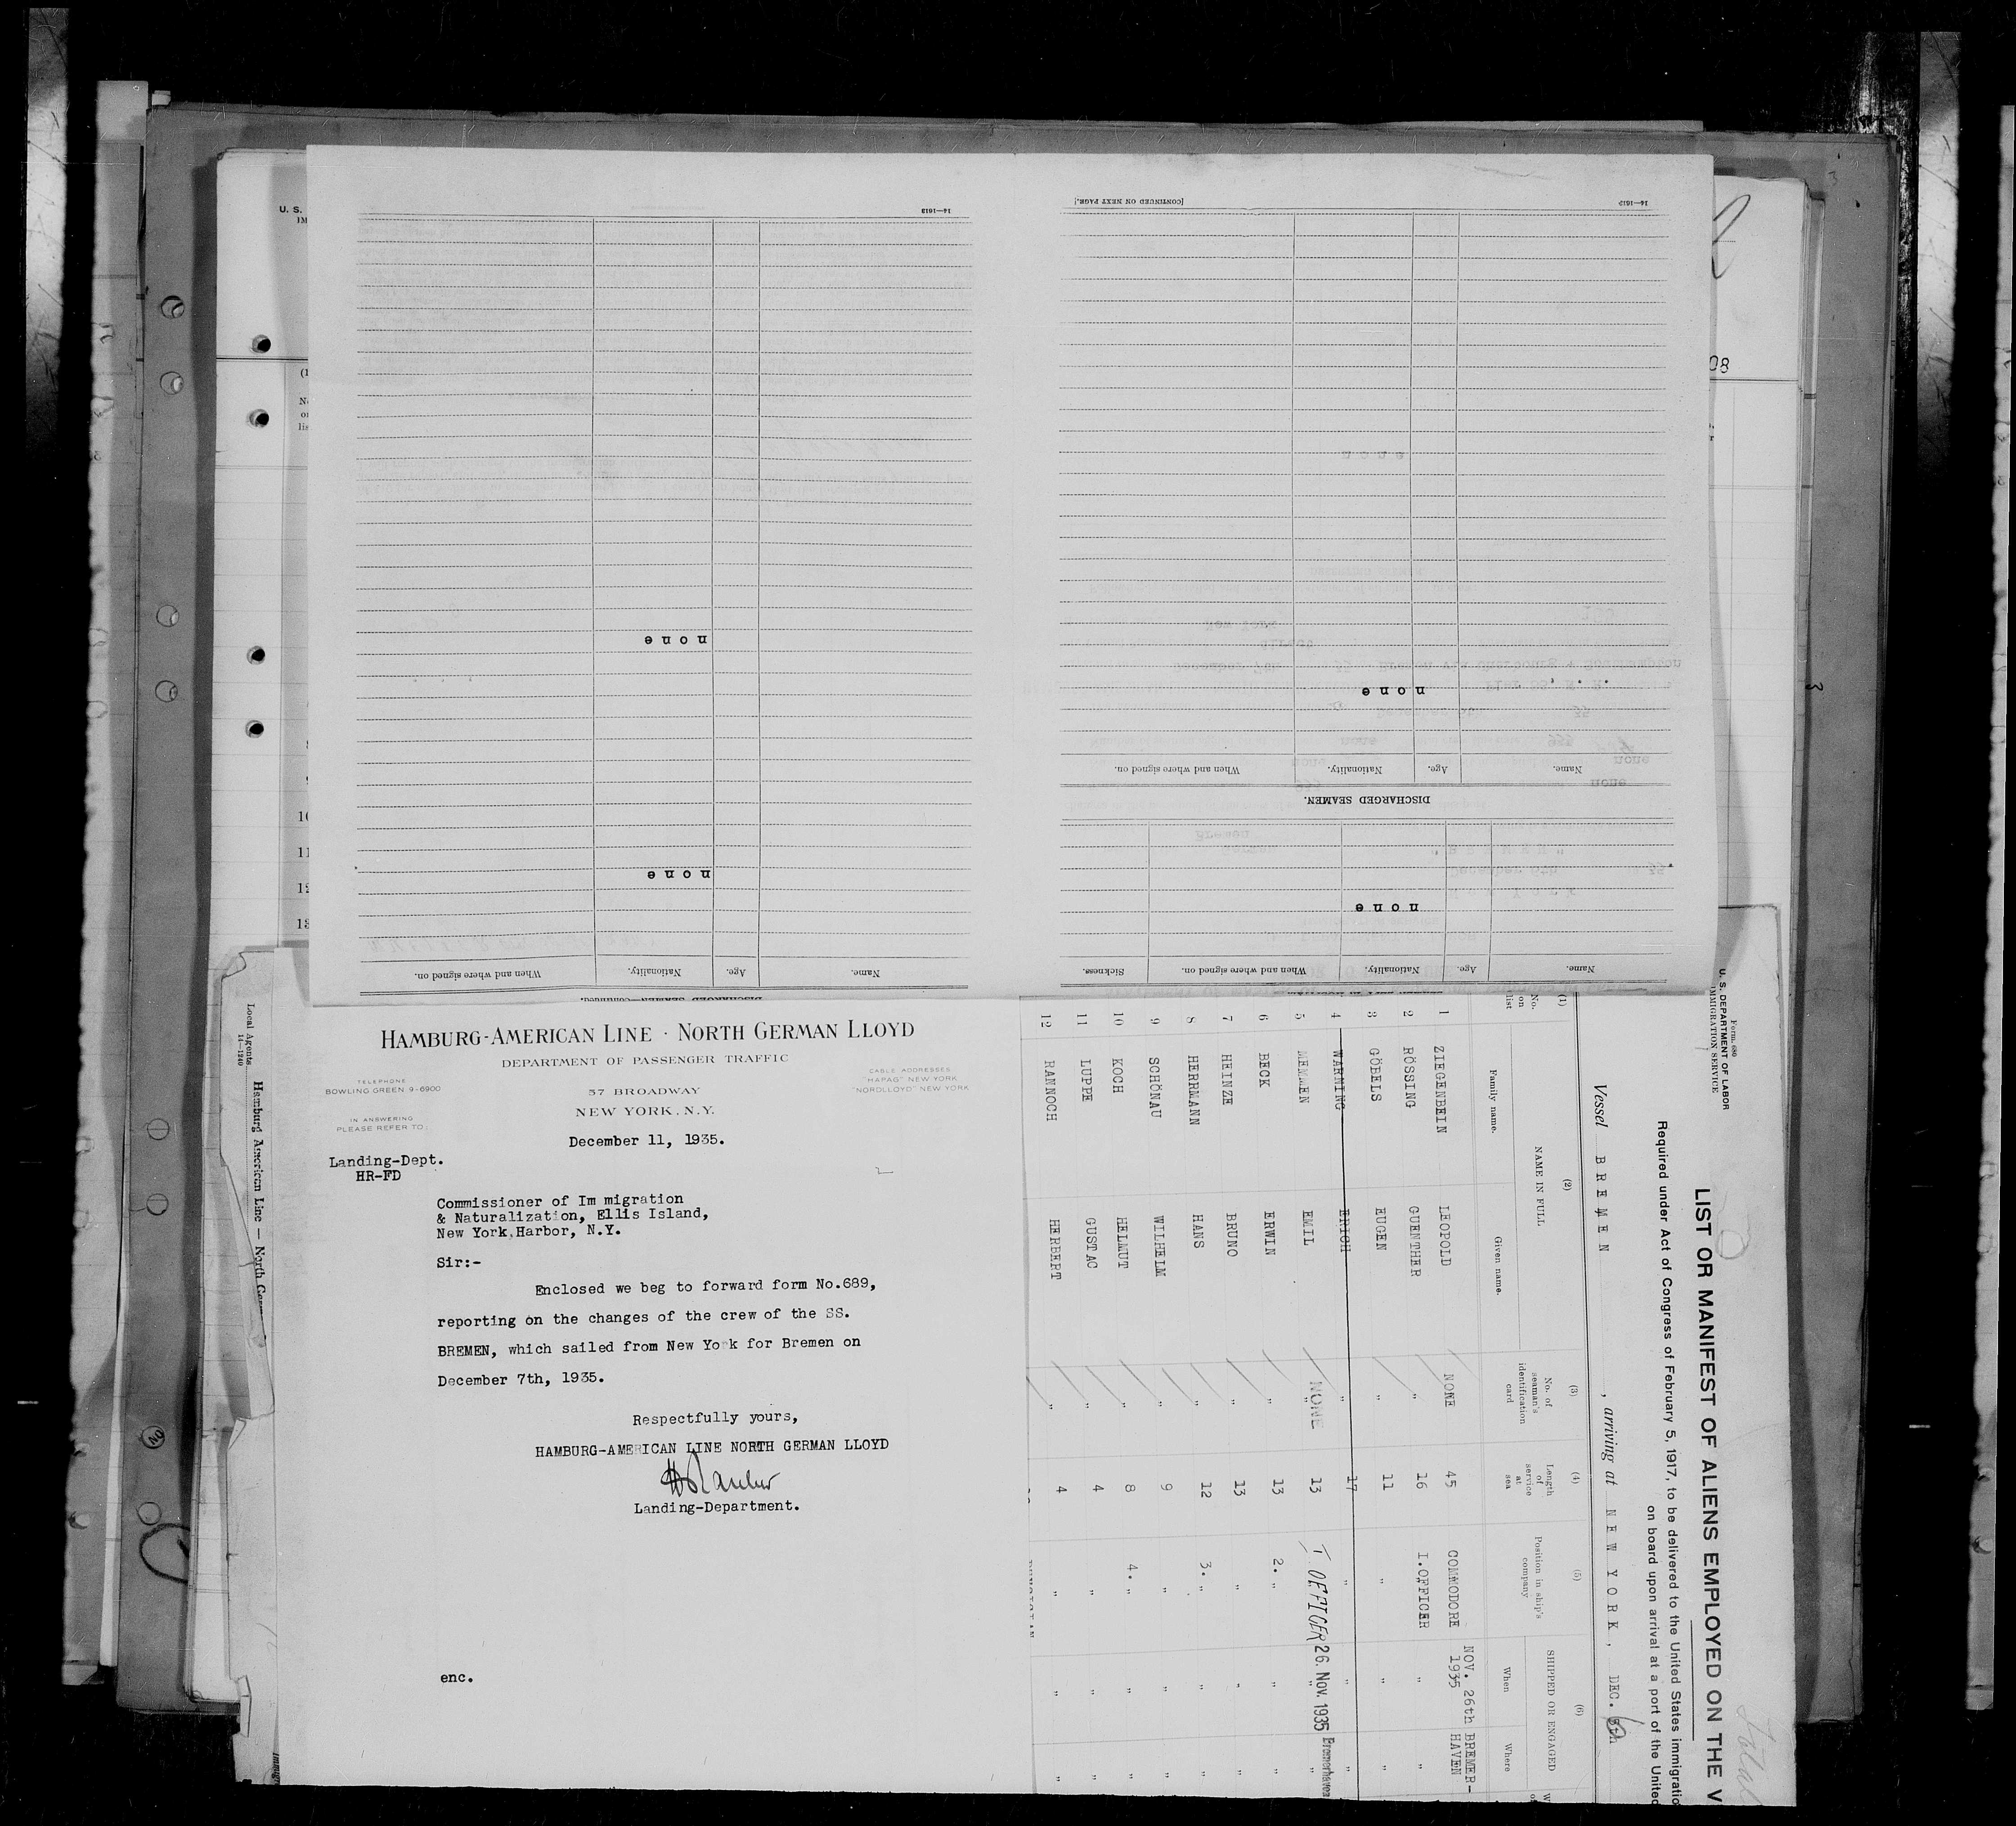 14—1613
none
none
When and where signed on.
Nationality.
Age.
Name.
DISCHARGED SEAMEN—Continued.
[CONTINUED ON NEXT PAGE.]
none
none
When and where signed on.
Nationality.
Age.
Name.
DISCHARGED SEAMEN.
none
Sickness.
When and where signed on.
Nationality.
Age.
Name.
U. S.
IM
(1
No
on
lis
10
11
12
13
08
Local Agents
14—1240
Hamburg American Line — North
HAMBURG-AMERICAN LINE · NORTH GERMAN LLOYD
DEPARTMENT OF PASSENGER TRAFFIC
TELEPHONE
BOWLING GREEN 9-6900
CABLE ADDRESSES
"HAPAG" NEW YORK
"NORDLLOYD" NEW YORK
57 BROADWAY
NEW YORK, N.Y.
IN ANSWERING
PLEASE REFER TO:
December 11, 1935.
Landing-Dept.
HR-FD
Commissioner of Im migration
& Naturalization, Ellis Island,
New York Harbor, N.Y.
Sir:-
Enclosed we beg to forward form No.689,
reporting on the changes of the crew of the SS.
BREMEN, which sailed from New York for Bremen on
December 7th, 1935.
Respectfully yours,
HAMBURG-AMERICAN LINE NORTH GERMAN LLOYD
Landing-Department.
enc.
Form 680
U. S. DEPARTMENT OF LABOR
IMMIGRATION SERVICE
LIST OR MANIFEST OF ALIENS EMPLOYED ON THE V
Required under Act of Congress of February 5, 1917, to be delivered to the United States immigratio
on board upon arrival at a port of the United
Vessel BREMEN, arriving at NEW YORK, DEC.
(1) (2) (3) (4) (5) (6)
No. on list
NAME IN FULL
Family name. Given name.
No. of seaman's identification card
Length of service at sea
Position in ship's company
SHIPPED OR ENGAGED
When Where
1 ZIEGENBEIN LEOPOLD NONE 45 COMMODORE NOV. 26th 1935 BREMER-HAVEN
2 RÖSSING GUENTHER " 16 I.OFFICER " "
3 GÖBELS EUGEN " 11 " " "
4 WARNING ERICH " 17 " " "
5 MEMMEN EMIL NONE 13 I OFFICER 26. Nov. 1935 Bremerhaven
6 BECK ERWIN " 13 2. " " "
7 HEINZE BRUNO " 13 " " "
8 HERRMANN HANS " 12 3. " " "
9 SCHÖNAU WILHELM " 9 " " "
10 KOCH HELMUT " 8 4. " " "
11 LUPPE GUSTAC " 4 " " "
12 RANNOCH HERBERT " 4 " " "